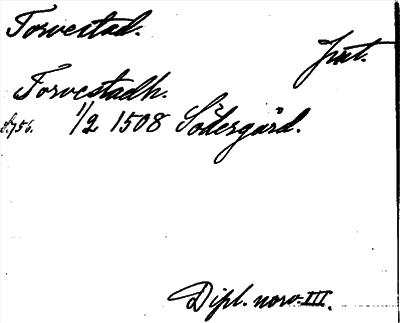 Torvestad.
Jnt.
Torvestadh.
S. 756. 1/2 1508 Södergård.
Dipl. norv. III.